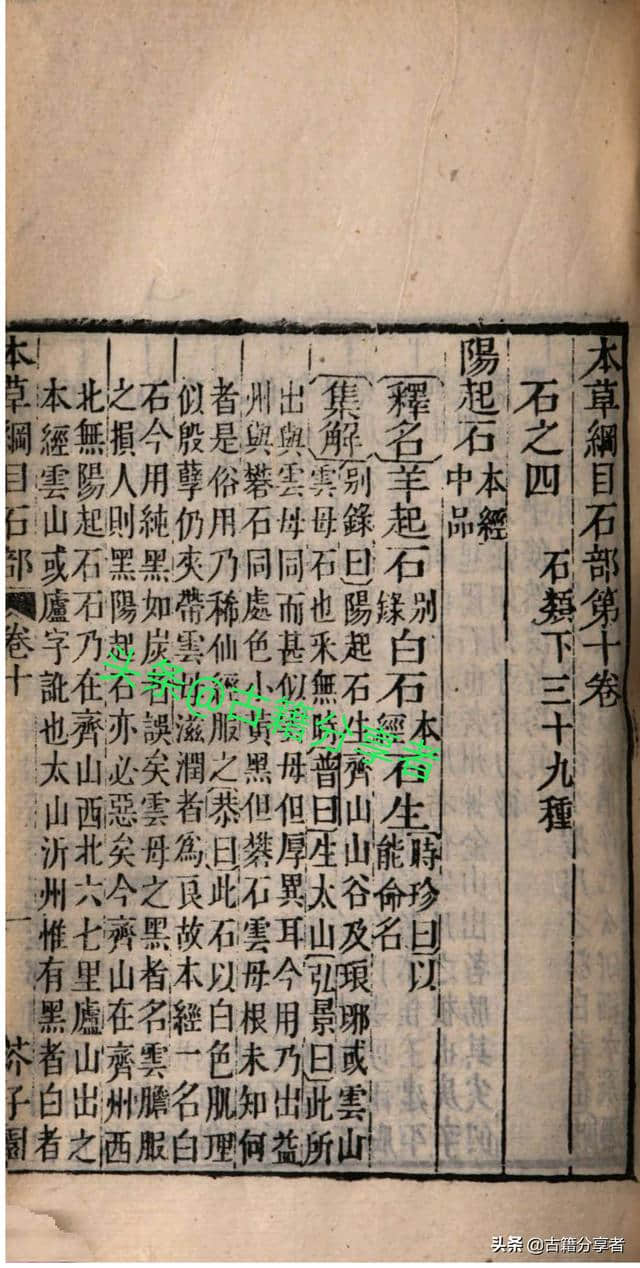 本草綱目石部第十卷
石之四 石類下三十九種
陽起石 本經中品
釋名 羊起石 別錄 白石 本經 石生 時珍曰以能命名
集解 別錄曰陽起石生齊山山谷及琅琊或雲山
雲母石也采無時普曰生太山弘景曰此所
出與雲母同而甚似雲母但厚異耳今用乃出益
州與礬石同處色小黃黑但礬石雲母根未知何
者是俗用乃稀仙經服之恭曰此石以白色肌理
似殷孽仍夾帶雲母滋潤者爲良故本經一名白
石今用純黑如炭者誤矣雲母之黑者名雲膽服
之損人則黑陽起石亦必惡矣今齊山在齊州西
北無陽起石石乃在齊山西北六七里廬山出之
本經雲山或廬字訛也太山沂州惟有黑者白者
本草綱目石部 卷十 一 芥子園
头条@古籍分享者
头条@古籍分享者